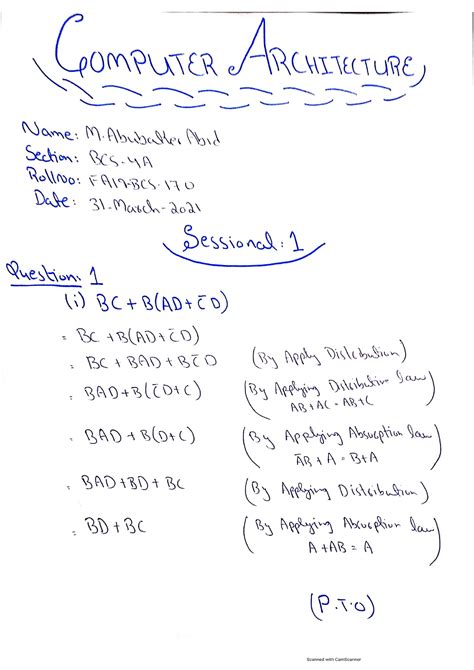 COMPUTER ARCHITECTURE
Name: M. Abubakker Abid
Section: BCS-4A
RollNo: FA19-BCS-170
Date: 31-March-2021
Sessional: 1
Question: 1
(i) BC + B(AD + C̄D)
= BC + B(AD + C̄D)
= BC + BAD + BC̄D (By Apply Distribution)
= BAD + B(C̄D + C) (By Applying Distribution law AB + AC = AB + C)
= BAD + B(D + C) (By Applying Absorption law ĀB + A = B + A)
= BAD + BD + BC (By Applying Distribution)
= BD + BC (By Applying Absorption law A + AB = A)
(P.T.O)
Scanned with CamScanner